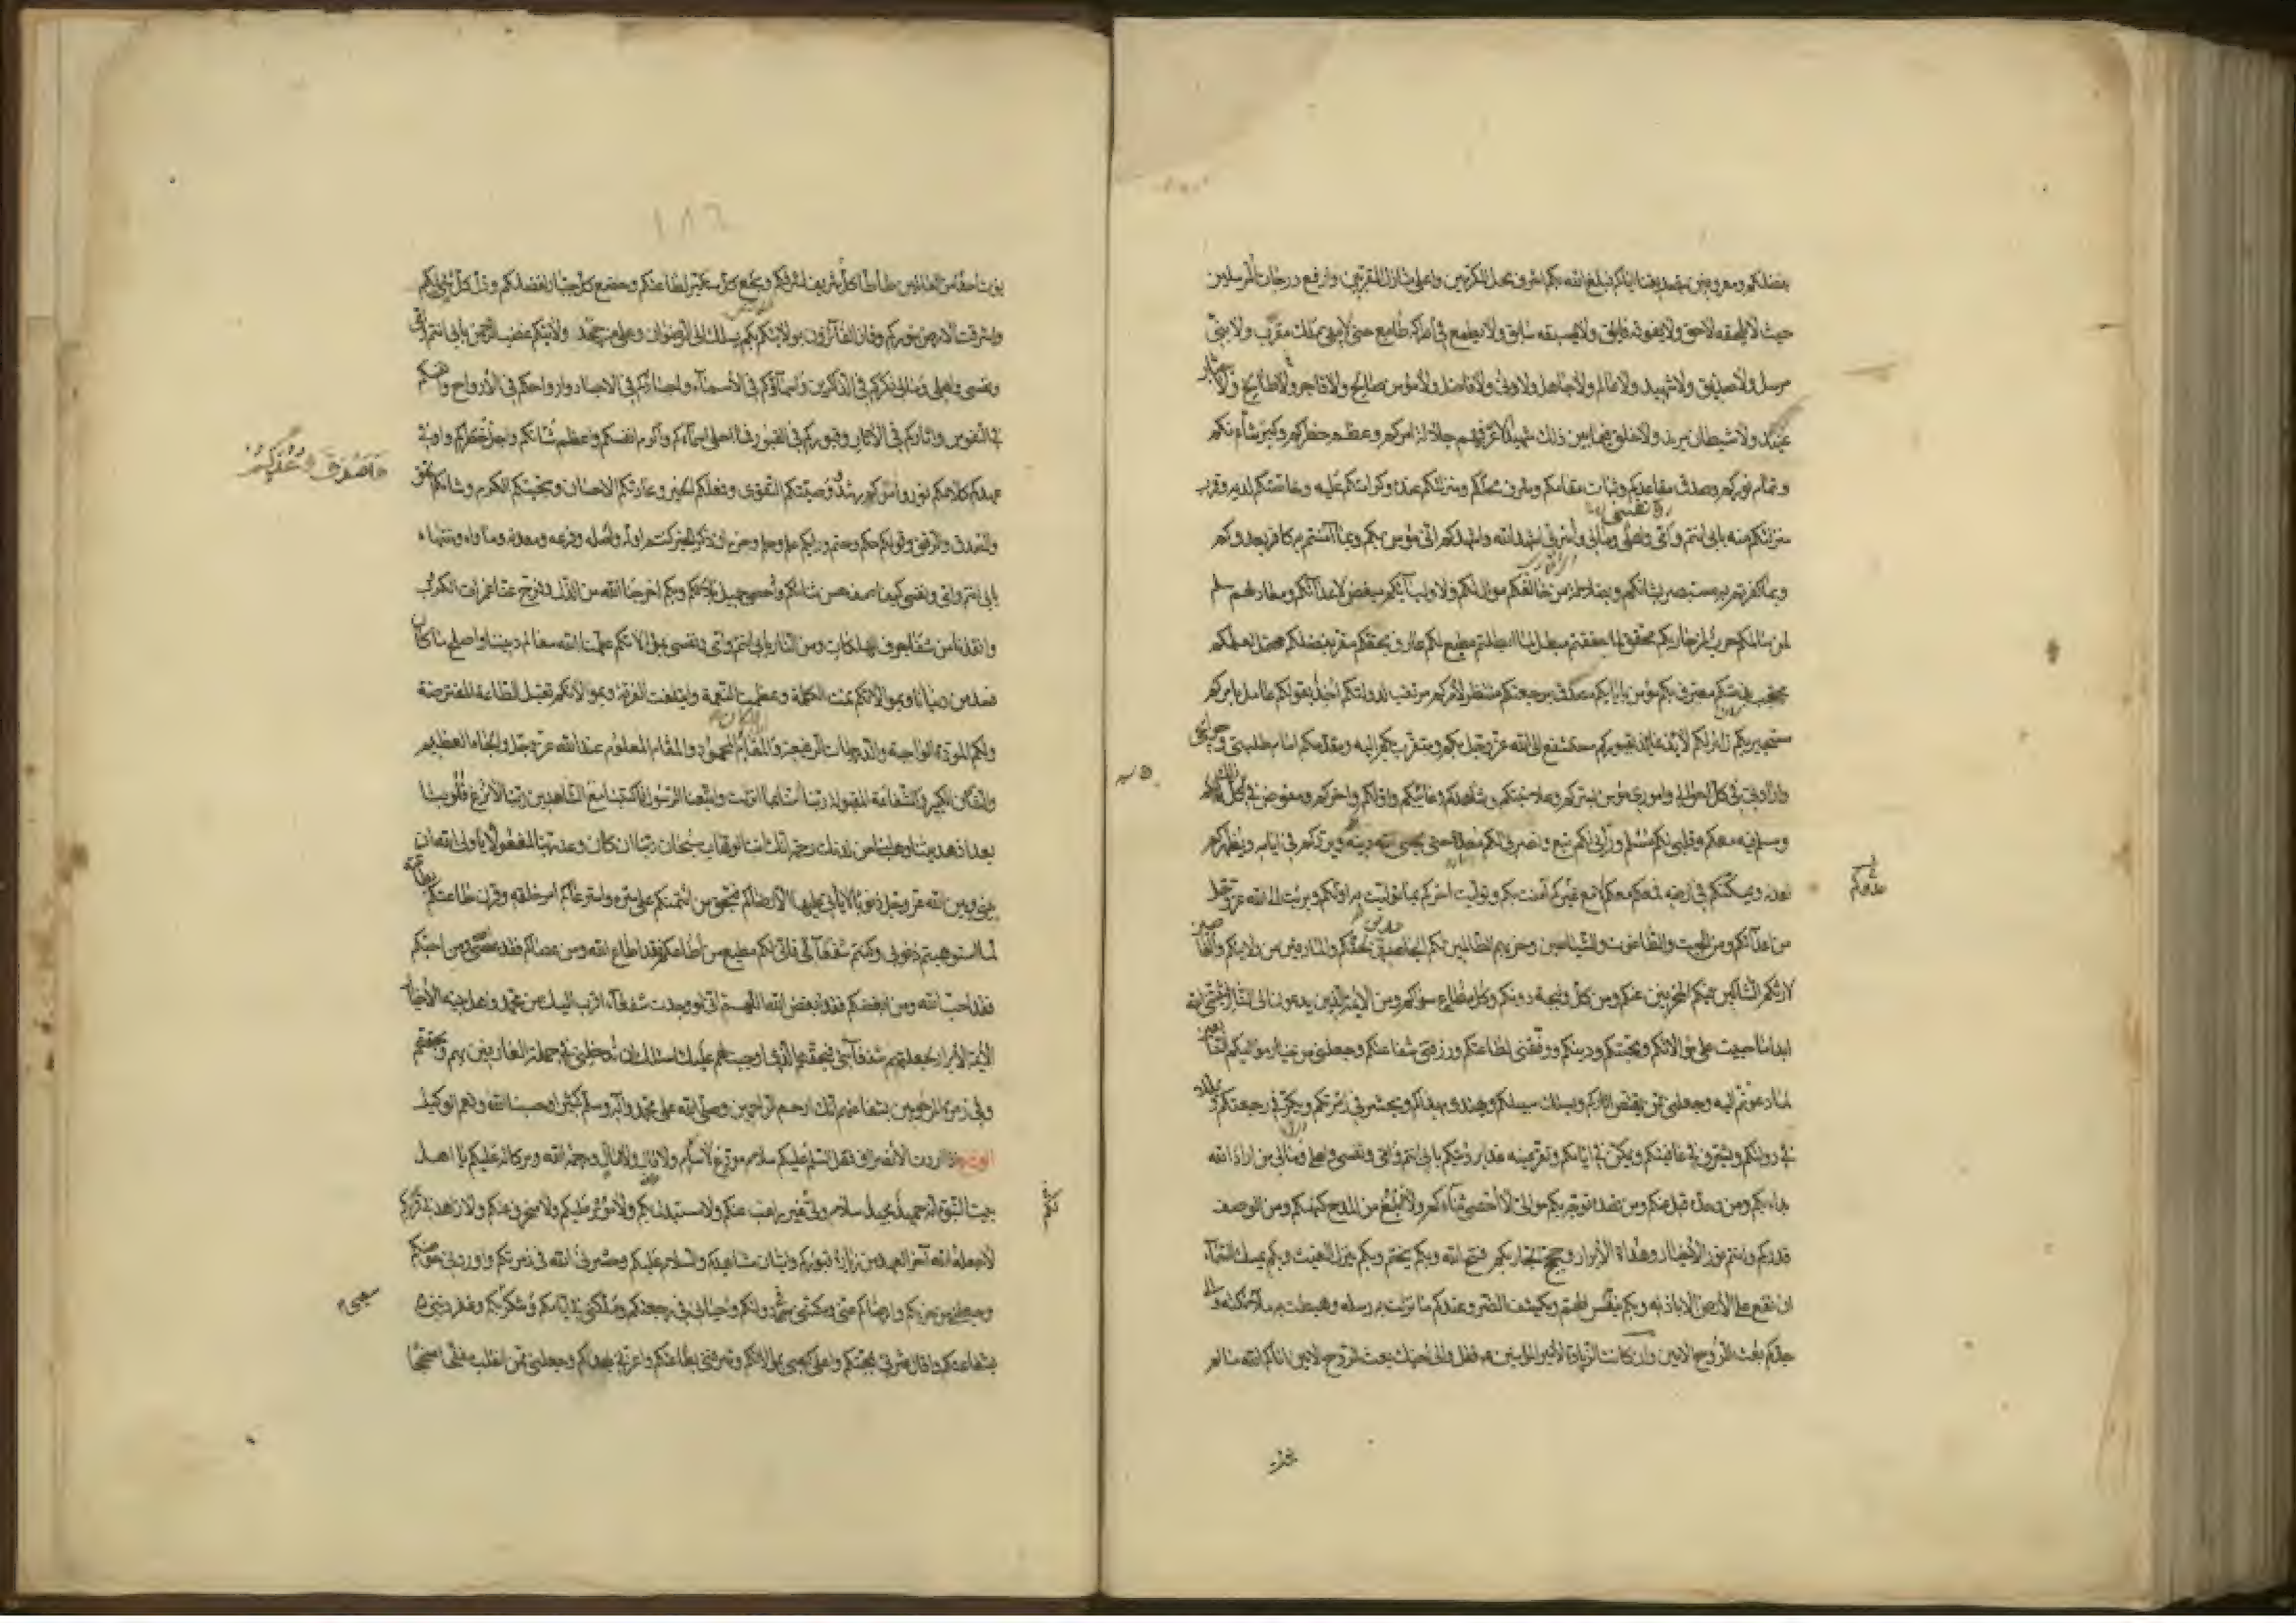 بفضلكم ومعروفين بتصديقنا اياكم فبلغ الله بكم اشرف محل المكرمين واعلى منازل المقربين وارفع درجات المرسلين
حيث لا يلحقه لاحق ولا يفوقه فايق ولا يسبقه سابق ولا يطمع في ادراكه طامع حتى لا يبقى ملك مقرب ولا نبي
مرسل ولا صديق ولا شهيد ولا عالم ولا جاهل ولا دني ولا فاضل ولا مؤمن صالح ولا فاجر طالح ولا جبار
عنيد ولا شيطان مريد ولا خلق فيما بين ذلك شهيد الا عرفهم جلالة امركم وعظم خطركم وكبر شأنكم
وتمام نوركم وصدق مقاعدكم وثبات مقامكم وشرف محلكم ومنزلتكم عنده وكرامتكم عليه وخاصتكم لديه وقرب
ونفسي
منزلتكم منه بابي انتم وامي واهلي ومالي واسرتي اشهد الله واشهدكم اني مؤمن بكم وبما آمنتم به كافر بعدوكم
وبما كفرتم به مستبصر بشانكم وبضلالة من خالفكم موال لكم ولاوليائكم مبغض لاعدائكم ومعاد لهم سلم
لمن سالمكم حرب لمن حاربكم محقق لما حققتم مبطل لما ابطلتم مطيع لكم عارف بحقكم مقر بفضلكم محتمل لعلمكم
محتجب بذمتكم معترف بكم مؤمن بايابكم مصدق برجعتكم منتظر لامركم مرتقب لدولتكم اخذ بقولكم عامل بامركم
مستجير بكم زائر لكم لائذ عائذ بقبوركم مستشفع الى الله عز وجل بكم ومتقرب بكم اليه ومقدمكم امام طلبتي وحوائجي
وارادتي في كل احوالي واموري مؤمن بسركم وعلانيتكم وشاهدكم وغائبكم واولكم واخركم ومفوض في ذلك كله
ومسلم فيه معكم وقلبي لكم مسلم ورأيي لكم تبع ونصرتي لكم معدة حتى يحيي الله دينه بكم ويردكم في ايامه ويظهركم
لعدله ويمكنكم في ارضه فمعكم معكم لا مع غيركم آمنت بكم وتوليت اخركم بما توليت به اولكم وبرئت الى الله عز وجل
عدوكم
من اعدائكم ومن الجبت والطاغوت والشياطين وحزبهم الظالمين لكم الجاحدين لحقكم والمارقين من ولايتكم والغاصبين
لارثكم الشاكين فيكم المنحرفين عنكم ومن كل وليجة دونكم وكل مطاع سواكم ومن الائمة الذين يدعون الى النار فثبتني الله
ابدا ما حييت على موالاتكم ومحبتكم ودينكم ووفقني لطاعتكم ورزقني شفاعتكم وجعلني من خيار مواليكم التابعين
لما دعوتم اليه وجعلني ممن يقتص اثاركم ويسلك سبيلكم ويهتدي بهداكم ويحشر في زمرتكم ويكر في رجعتكم ويملك
في دولتكم ويشرف في عافيتكم ويمكن في ايامكم وتقر عينه غدا برؤيتكم بابي انتم وامي ونفسي واهلي ومالي من اراد الله
بدا بكم ومن وحده قبل عنكم ومن قصده توجه بكم موالي لا احصي ثناءكم ولا ابلغ من المدح كنهكم ومن الوصف
قدركم وانتم نور الاخيار وهداة الابرار وحجج الجبار بكم فتح الله وبكم يختم وبكم ينزل الغيث وبكم يمسك السماء
ان تقع على الارض الا باذنه وبكم ينفس الهم ويكشف الضر وعندكم ما نزلت به رسله وهبطت به ملائكته والى
جدكم بعث الروح الامين وان كانت الزيارة لامير المؤمنين فقل والى اخيك بعث الروح الامين اتاكم الله ما لم
يؤت احدا من العالمين طأطأ كل شريف لشرفكم وبخع كل متكبر لطاعتكم وخضع كل جبار لفضلكم وذل كل شيء لكم
واشرقت الارض بنوركم وفاز الفائزون بولايتكم بكم يسلك الى الرضوان وعلى من جحد ولايتكم غضب الرحمن بابي انتم وامي
ونفسي واهلي ومالي ذكركم في الذاكرين واسماؤكم في الاسماء واجسادكم في الاجساد وارواحكم في الارواح وانفسكم
في النفوس واثاركم في الاثار وقبوركم في القبور فما احلى اسماءكم واكرم انفسكم واعظم شانكم واجل خطركم واوفى
وَاَصْدَقَ وَعْدَكُمْ
عهدكم كلامكم نور وامركم رشد ووصيتكم التقوى وفعلكم الخير وعادتكم الاحسان وسجيتكم الكرم وشانكم الحق
والصدق والرفق وقولكم حكم وحتم ورايكم علم وحلم وحزم ان ذكر الخير كنتم اوله واصله وفرعه ومعدنه وماواه ومنتهاه
بابي انتم وامي ونفسي كيف اصف حسن ثنائكم واحصي جميل بلائكم وبكم اخرجنا الله من الذل وفرج عنا غمرات الكروب
وانقذنا من شفا جرف الهلكات ومن النار بابي انتم وامي ونفسي بموالاتكم علمنا الله معالم ديننا واصلح ما كان
فسد من دنيانا وبموالاتكم تمت الكلمة وعظمت النعمة وايتلفت الفرقة وبموالاتكم تقبل الطاعة المفترضة
ولكم المودة الواجبة والدرجات الرفيعة والمقام المحمود والمقام المعلوم عند الله عز وجل والجاه العظيم
والشان الكبير والشفاعة المقبولة ربنا آمنا بما انزلت واتبعنا الرسول فاكتبنا مع الشاهدين ربنا لا تزغ قلوبنا
بعد اذ هديتنا وهب لنا من لدنك رحمة انك انت الوهاب سبحان ربنا ان كان وعد ربنا لمفعولا يا ولي الله ان
بيني وبين الله عز وجل ذنوبا لا ياتي عليها الا رضاكم فبحق من ائتمنكم على سره واسترعاكم امر خلقه وقرن طاعتكم بطاعته
لما استوهبتم ذنوبي وكنتم شفعائي فاني لكم مطيع من اطاعكم فقد اطاع الله ومن عصاكم فقد عصى الله ومن احبكم
فقد احب الله ومن ابغضكم فقد ابغض الله اللهم اني لو وجدت شفعاء اقرب اليك من محمد واهل بيته الاخيار
الائمة الابرار لجعلتهم شفعائي فبحقهم الذي اوجبت لهم عليك اسئلك ان تدخلني في جملة العارفين بهم وبحقهم
وفي زمرة المرحومين بشفاعتهم انك ارحم الراحمين وصلى الله على محمد وآله وسلم كثيرا وحسبنا الله ونعم الوكيل
الوداع اذا اردت الانصراف فقل السلام عليكم سلام مودع لا سئم ولا قال ورحمة الله وبركاته عليكم يا اهل
بيت النبوة انه حميد مجيد سلام ولي غير راغب عنكم ولا مستبدل بكم ولا مؤثر عليكم ولا منحرف عنكم ولا زاهد في قربكم
لا جعله الله آخر العهد من زيارة قبوركم واتيان مشاهدكم والسلام عليكم وحشرني الله في زمرتكم واوردني حوضكم
وجعلني من حزبكم وارضاكم عني ومكنني في دولتكم واحياني في رجعتكم وملكني في ايامكم وشكر سعيي بكم وغفر ذنبي
بشفاعتكم واقال عثرتي بمحبتكم واعلى كعبي بموالاتكم وشرفني بطاعتكم واعزني بهداكم وجعلني ممن انقلب مفلحا منجحا